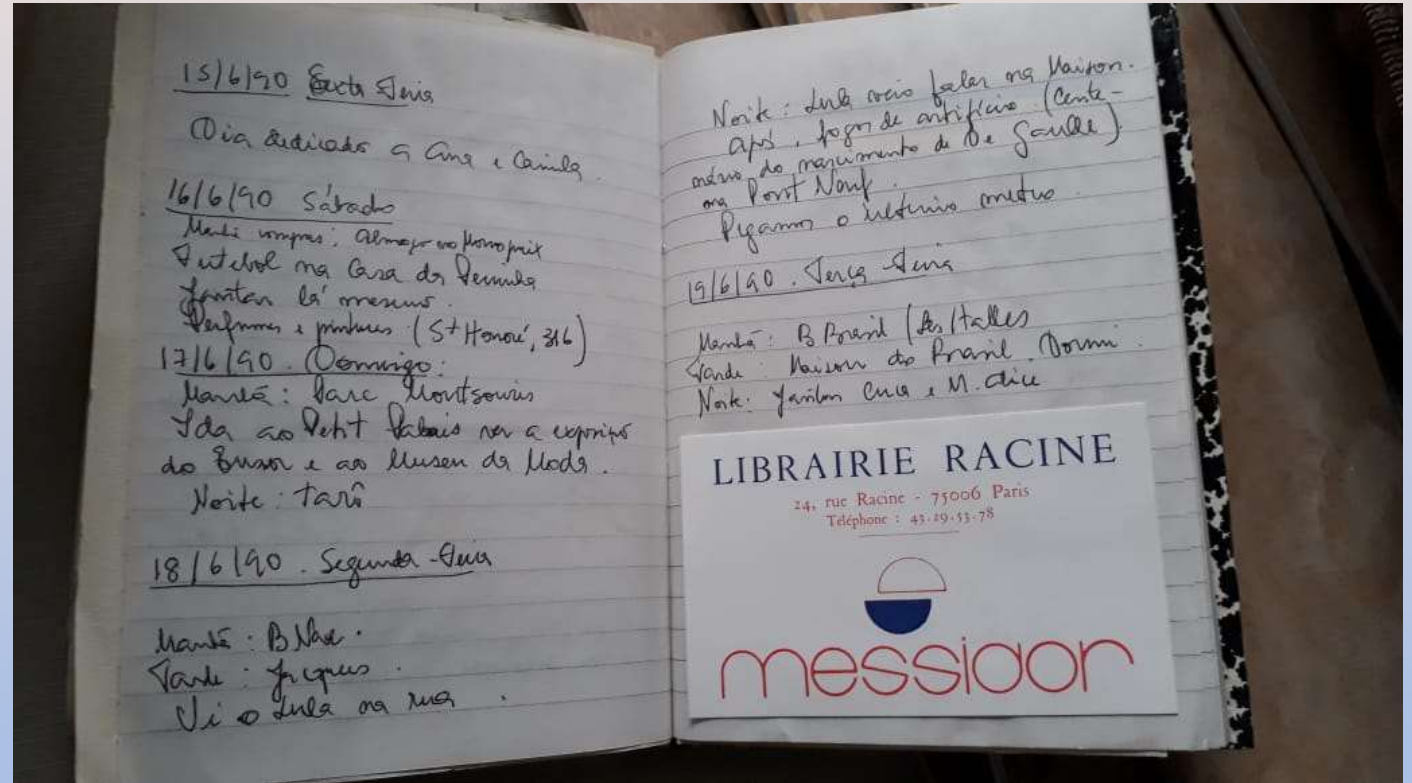 15/6/90 Sexta Feira
Dia dedicado a Ana e Camila.
16/6/90 Sábado
Manhã compras; Almoço no Monoprix
Futebol na Casa da
Jantar lá mesmo.
Perfumes e pinturas (St Honoré, 316)
17/6/90. Domingo:
Manhã: Parc Montsouris
Ida ao Petit Palais ver a exposição
do e ao Museu da Moda.
Noite: tarô
18/6/90. Segunda-Feira
Manhã: B Nac.
Tarde: Jacques.
Vi o Lula na rua.
Noite: Lula veio falar na Maison.
Após, fogos de artifício (Cente-
nário do nascimento de De Gaulle)
na Pont Neuf.
Pegamos o último metro.
19/6/90. Terça-Feira
Manhã: B Brasil / Les Halles
Tarde: Maison do Brasil. Dormi.
Noite: Jantar e M.
LIBRAIRIE RACINE
24, rue Racine - 75006 Paris
Téléphone : 43.29.53.78
messidor